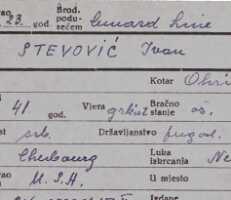 23. god. Brod. podu- sećem Cunard Line
STEVOVIĆ Ivan
Kotar Ohri
41 god. Vjera grkist. Bračno stanje ož.
st srb. Državljanstvo jugosl.
Cherbourg Luka iskrcanja Ne
ao U.S.A. U mjesto
Izdane